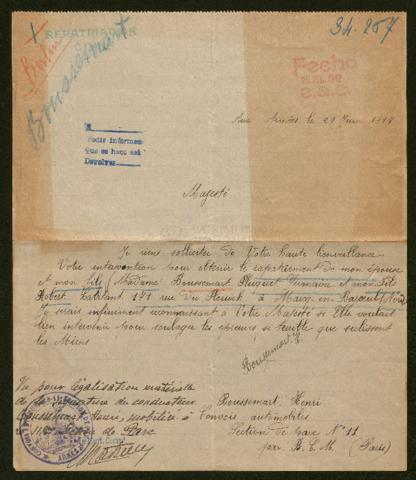 X
REPATRIACION
34.267
Boussemart
Fecho
e.a.e.
Aux Armées le 29 Juin 1918
Pedir informes
que se hace así
Devolver
Majesté
Je viens solliciter de Votre haute bienveillance
Votre intervention pour obtenir le rapatriement de mon épouse
et mon fils (Madame Boussemart Pluquet Germaine et mon fils
Robert habitant 171 rue du à Marcq en Baroeul Nord
Je serais infiniment reconnaissant à Votre Majesté si Elle voulait
bien intervenir pour soulager les que subissent
les Miens
Boussemart H.
Vu pour légalisation matérielle
de la signature du conducteur
Boussemart Henri, mobilisé à
de Parc
Boussemart, Henri
Convois automobiles
Section de parc N° 11
par B.C.M. (Paris)